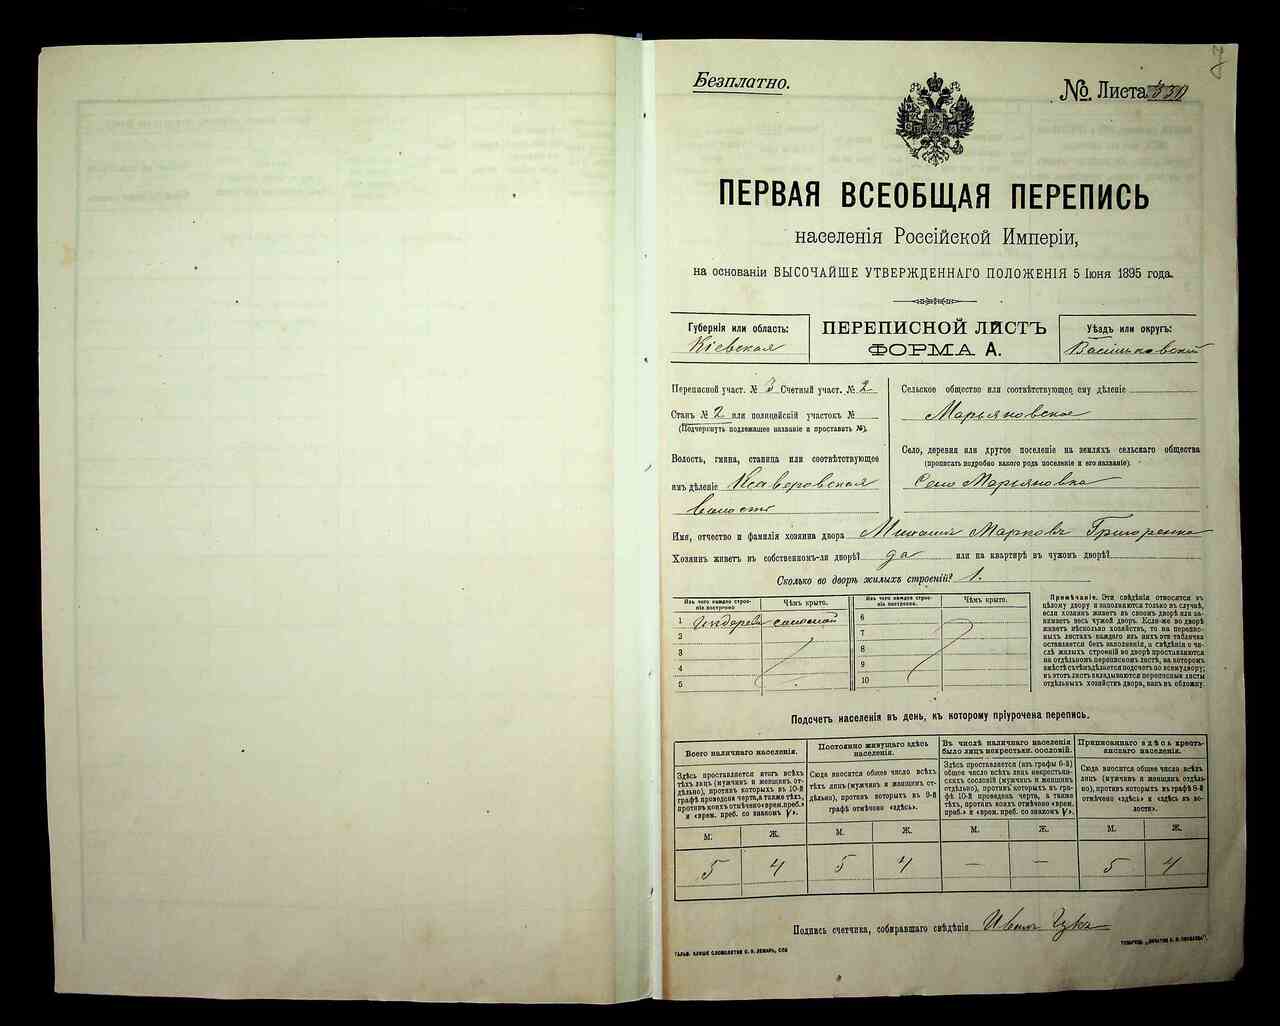 Безплатно.
№ Листа
ПЕРВАЯ ВСЕОБЩАЯ ПЕРЕПИСЬ
населенія Россійской Имперіи,
на основаніи ВЫСОЧАЙШЕ УТВЕРЖДЕННАГО ПОЛОЖЕНІЯ 5 Іюня 1895 года.
Губернія или область:
Кіевская
ПЕРЕПИСНОЙ ЛИСТЪ
ФОРМА А.
Уѣздъ или округъ:
Васильковскій
Переписной участ. № 3 Счетный участ. № 2
Станъ № 2 или полицейскій участокъ №
(Подчеркнуть подлежащее названіе и проставить №).
Волость, гмина, станица или соотвѣтствующее
имъ дѣленіе Ксаверовская
волость
Сельское общество или соотвѣтствующее ему дѣленіе
Марьяновское
Село, деревня или другое поселеніе на земляхъ сельскаго общества
(прописать подробно какого рода поселеніе и его названіе).
Село Марьяновка
Имя, отчество и фамилія хозяина двора Михаилъ Марковъ Григоренко
Хозяинъ живетъ въ собственномъ-ли дворѣ? да или на квартирѣ въ чужомъ дворѣ?
Сколько во дворѣ жилыхъ строеній? 1.
Изъ чего каждое строе-
ніе построено
Чѣмъ крыто.
Изъ чего каждое строе-
ніе построено.
Чѣмъ крыто.
1 соломой
2
3
4
5
6
7
8
9
10
Примѣчаніе. Эти свѣдѣнія относятся къ
цѣлому двору и заполняются только въ случаѣ,
если хозяинъ живетъ въ своемъ дворѣ или за-
нимаетъ весь чужой дворъ. Если-же во дворѣ
живетъ нѣсколько хозяйствъ, то на перепис-
ныхъ листахъ каждаго изъ нихъ эта табличка
оставляется безъ заполненія, а свѣдѣнія о чи-
слѣ жилыхъ строеній во дворѣ проставляются
на отдѣльномъ переписномъ листѣ, на которомъ
вмѣстѣ съ тѣмъ дѣлается подсчетъ по всему двору;
въ этотъ листъ вкладываются переписные листы
отдѣльныхъ хозяйствъ двора, какъ въ обложку.
Подсчетъ населенія въ день, къ которому пріурочена перепись.
Всего наличнаго населенія.
Здѣсь проставляется итогъ всѣхъ
тѣхъ лицъ (мужчинъ и женщинъ от-
дѣльно), противъ которыхъ въ 10-й
графѣ проведена черта, а также тѣхъ,
противъ коихъ отмѣчено «врем. преб.»
и «врем. преб. со знакомъ V».
Постоянно живущаго здѣсь
населенія.
Сюда вносится общее число всѣхъ
тѣхъ лицъ (мужчинъ и женщинъ от-
дѣльно), противъ которыхъ въ 9-й
графѣ отмѣчено «здѣсь».
Въ числѣ наличнаго населенія
было лицъ некрестьян. сословій.
Здѣсь проставляется (изъ графы 6-й)
общее число всѣхъ лицъ некрестьян-
скихъ сословій (мужчинъ и женщинъ
отдѣльно), противъ которыхъ въ гра-
фѣ 10-й проведена черта, а также
тѣхъ, противъ коихъ отмѣчено «врем.
преб.» и «врем. преб. со знакомъ V».
Приписаннаго здѣсь кресть-
янскаго населенія.
Сюда вносится общее число всѣхъ
лицъ (мужчинъ и женщинъ отдѣль-
но), противъ которыхъ въ графѣ 8-й
отмѣчено «здѣсь» и «здѣсь въ во-
лости».
М. Ж. М. Ж. М. Ж. М. Ж.
5 4 5 4 — — 5 4
Подпись счетчика, собиравшаго свѣдѣнія Иванъ